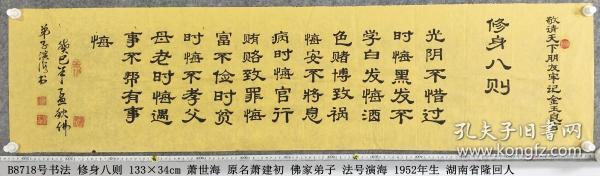 敬请天下朋友牢记金玉良
修身八则
光阴不惜过
时悔黑发不
学白发悔酒
色赌博致祸
悔安不将息
病时悔官行
贿赂致罪悔
富不俭时贫
时悔不孝父
母老时悔遇
事不帮有事
悔
癸巳年孟秋佛
弟子演海书
B8718号书法 修身八则 133×34cm 萧世海 原名萧建初 佛家弟子 法号演海 1952年生 湖南省隆回人